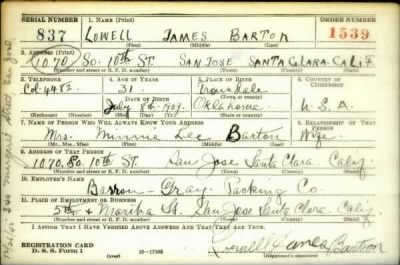 SERIAL NUMBER 1. NAME (Print) ORDER NUMBER
837 LOWELL JAMES BARTON 1539
(First) (Middle) (Last)
2. ADDRESS (Print)
1070 So. 10th ST. SAN JOSE SANTA CLARA. CALIF.
(Number and street or R. F. D. number) (Town) (County) (State)
3. TELEPHONE 4. AGE IN YEARS 5. PLACE OF BIRTH 6. COUNTRY OF CITIZENSHIP
Col. 31.
DATE OF BIRTH
July 8th 1909. Oklahoma U.S.A.
(Exchange) (Number) (Mo.) (Day) (Yr.) (State or country)
7. NAME OF PERSON WHO WILL ALWAYS KNOW YOUR ADDRESS 8. RELATIONSHIP OF THAT PERSON
Mrs. Minnie Lee Barton Wife.
(Mr., Mrs., Miss) (First) (Middle) (Last)
9. ADDRESS OF THAT PERSON
1070. So. 10th ST. San Jose Santa Clara Calif.
(Number and street or R. F. D. number) (Town) (County) (State)
10. EMPLOYER'S NAME
Barron-Gray. Packing Co.
11. PLACE OF EMPLOYMENT OR BUSINESS
5th & Martha St. San Jose Santa Clara Calif.
(Number and street or R. F. D. number) (Town) (County) (State)
I AFFIRM THAT I HAVE VERIFIED ABOVE ANSWERS AND THAT THEY ARE TRUE.
REGISTRATION CARD
D. S. S. Form 1 Lowell James Barton
(Registrant's signature)